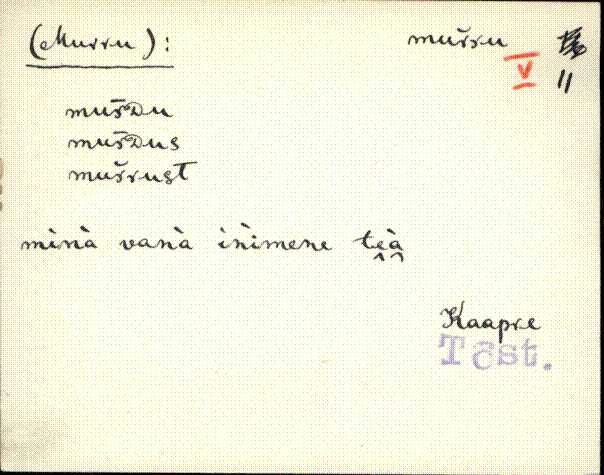 (Murru): murru
V 11
murDu
murDus
murrust
minà vanà inimene teà
Kaapre
Tõst.